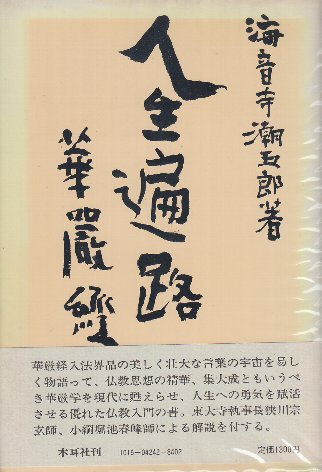 海音寺潮五郎著
人生遍路
華厳經
華厳経入法界品の美しく壮大な言葉の宇宙を易し
く物語って、仏教思想の精華、集大成ともいうべ
き華厳学を現代に甦えらせ、人生への勇気を賦活
させる優れた仏教入門の書。東大寺執事長狭川宗
玄師、小網堀池春峰師による解説を付する。
木耳社刊
1015-04242-8402
定価1300円